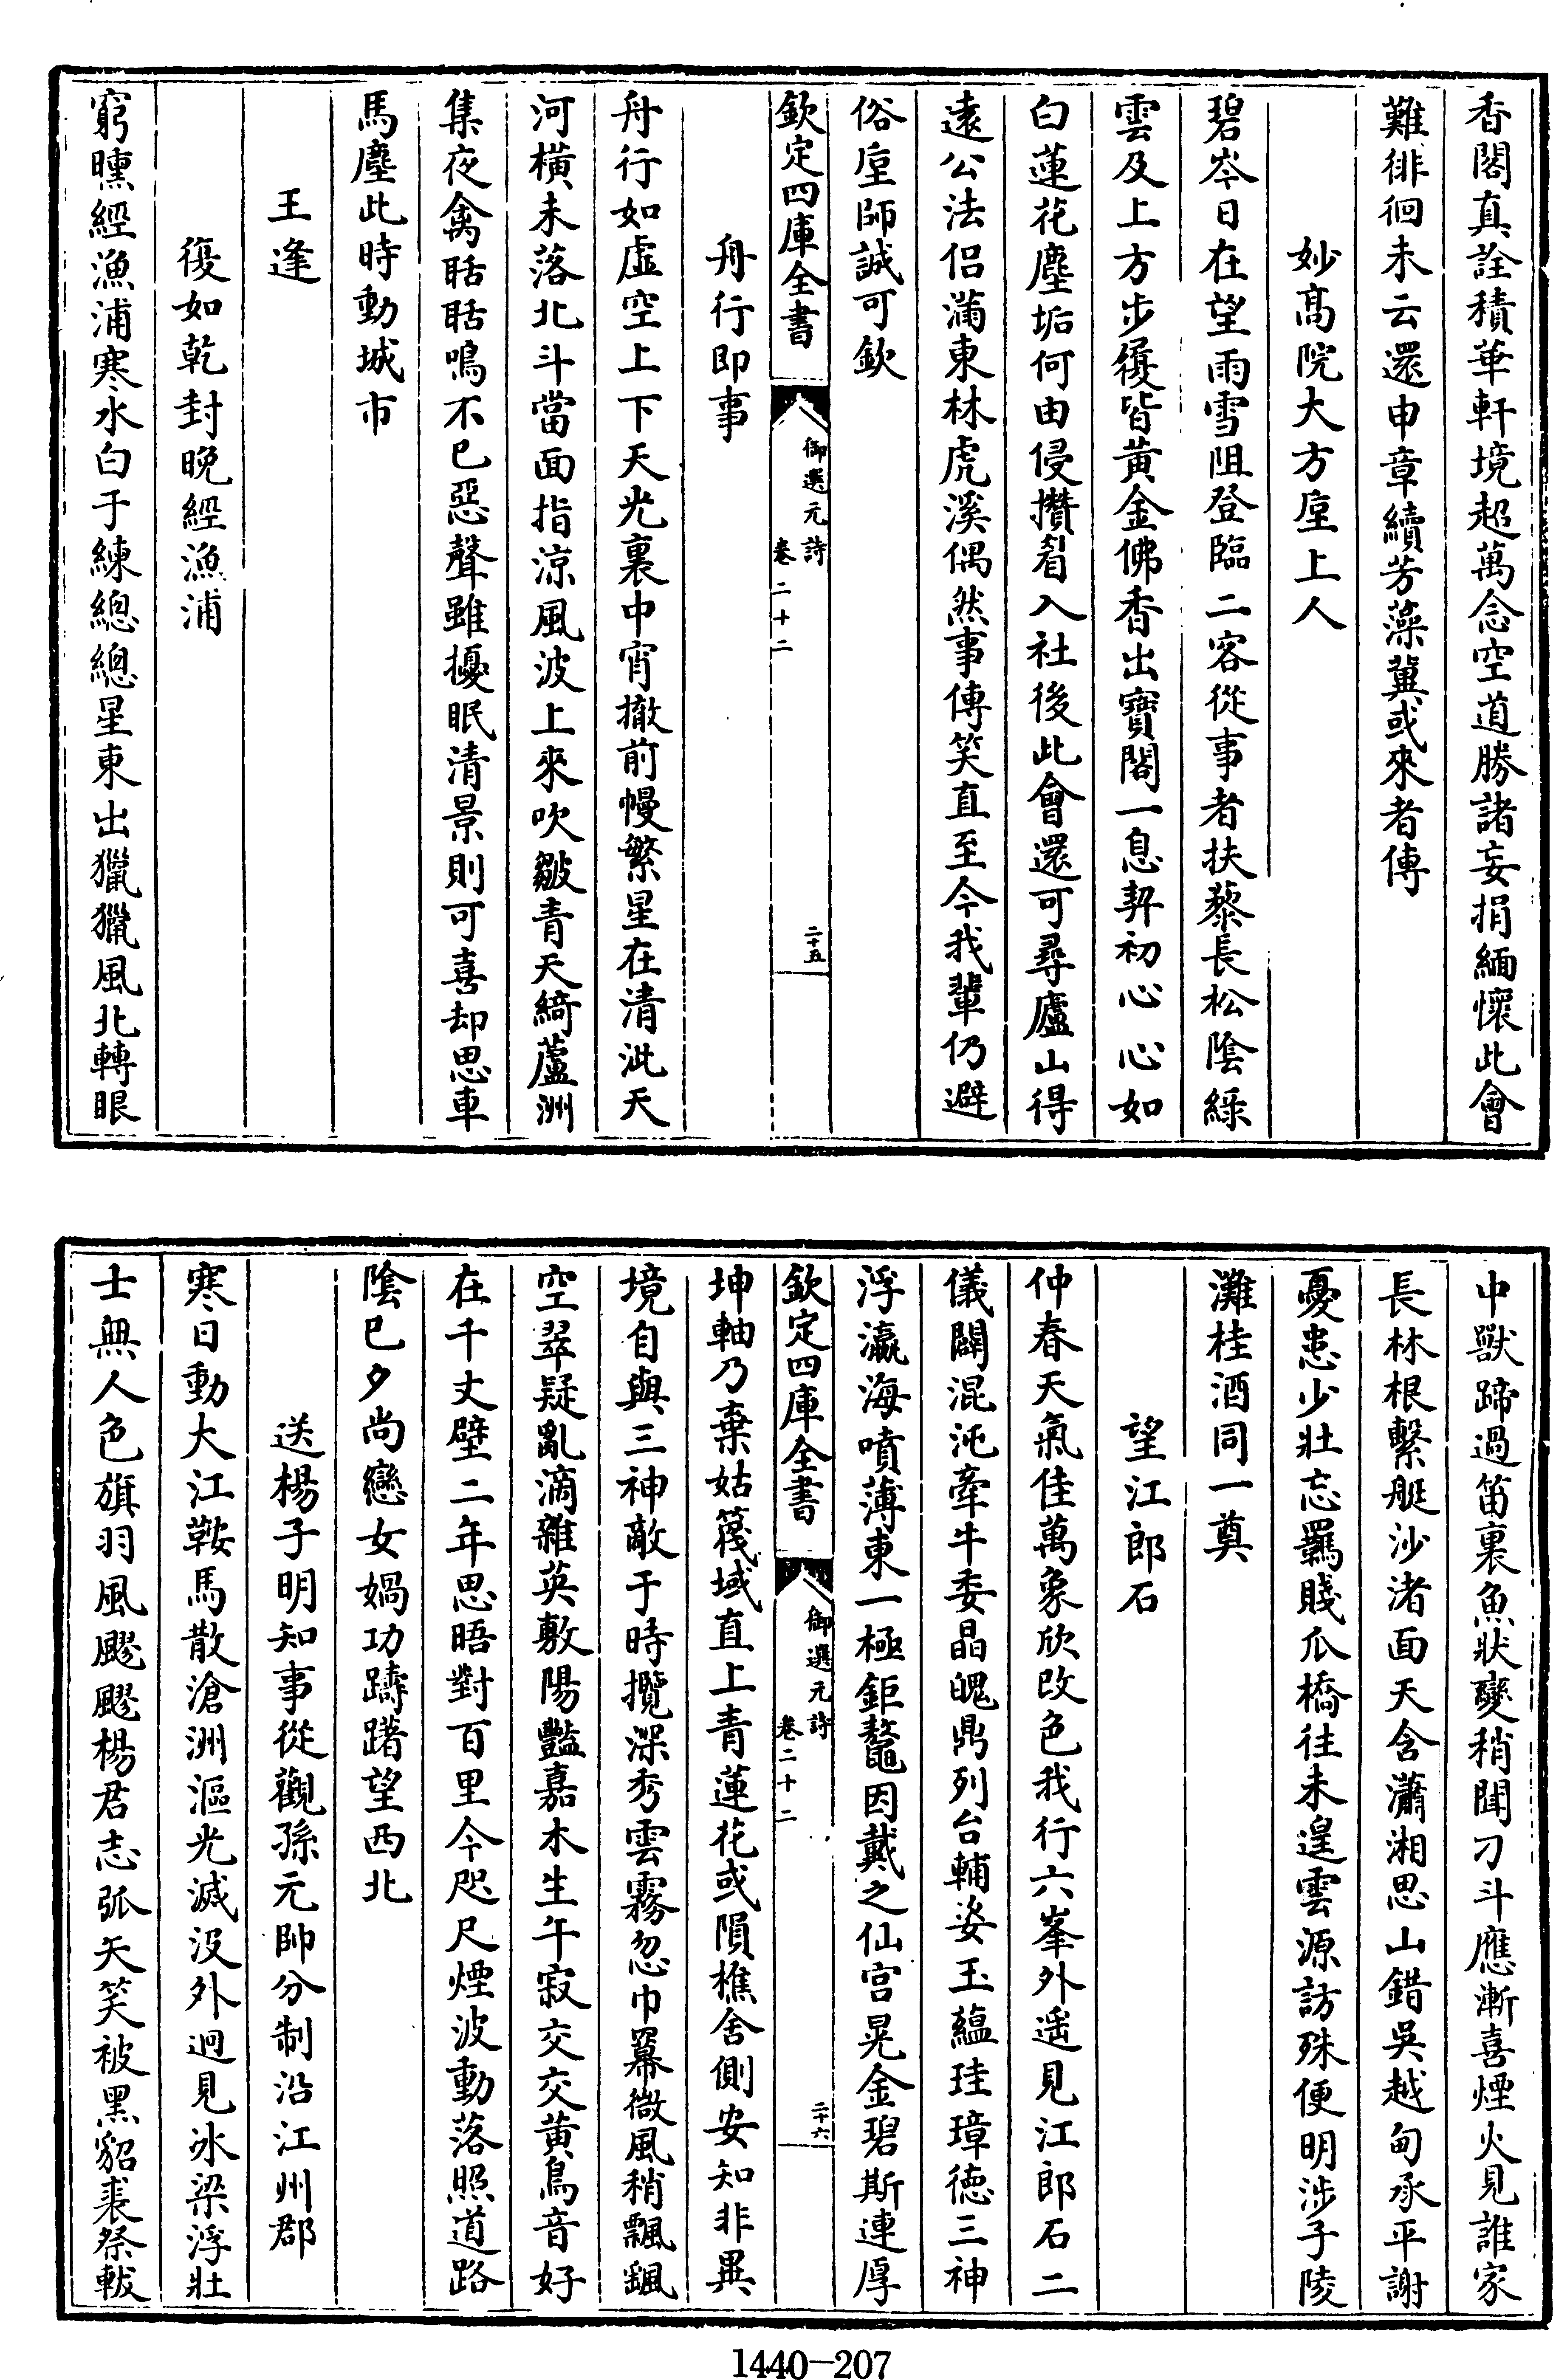 香閣真詮積華軒境超萬念空道勝諸妄捐緬懷此會
難徘徊未云還申章續芳藻冀或來者傳
妙髙院大方㕓上人
碧岑日在望雨雪阻登臨二客從事者扶藜長松陰緑
雲及上方步履皆黄金佛香出寳閣一息契初心心如
白蓮花塵垢何由侵攢眉入社後此會還可尋廬山得
遠公法侣滿東林虎溪偶然事傳笑直至今我輩仍避
俗㕓師誠可欽
欽定四庫全書
御選元詩
卷二十二
二十五
舟行即事
舟行如虚空上下天光裏中宵撤前幔繁星在清泚天
河横未落北斗當面指涼風波上來吹皺青天綺蘆洲
集夜禽聒聒鳴不已惡聲雖擾眠清景則可喜却思車
馬塵此時動城市
王逢
復如乾封晚經漁浦
窮曛經漁浦寒水白于練總總星東出獵獵風北轉眼
中獸蹄過笛裏魚狀變稍聞刁斗應漸喜煙火見誰家
長林根繫艇沙渚面天含瀟湘思山錯吳越甸承平謝
憂患少壯忘羈賤瓜橋往未遑雲源訪殊便明涉子陵
灘桂酒同一奠
望江郎石
仲春天氣佳萬象欣改色我行六峯外遥見江郎石二
儀闢混沌牽牛委晶魄鼎列台輔姿玉藴珪璋徳三神
浮瀛海噴薄東一極鉅鼇因戴之仙宫晃金碧斯連厚
欽定四庫全書
御選元詩
卷二十二
二十六
坤軸乃棄姑篾域直上青蓮花或隕樵舍側安知非異
境自與三神敵于時攬深秀雲霧忽巾羃微風稍飄颻
空翠疑亂滴雜英敷陽豔嘉木生午寂交交黄鳥音好
在千丈壁二年思晤對百里今咫尺煙波動落照道路
隂已夕尚戀女媧功躊躇望西北
送楊子明知事從觀孫元帥分制沿江州郡
寒日動大江鞍馬散滄洲漚光滅没外迥見氷梁浮壯
士無人色旗羽風颼颼楊君志弧矢笑被黑貂裘祭軷
1440-207